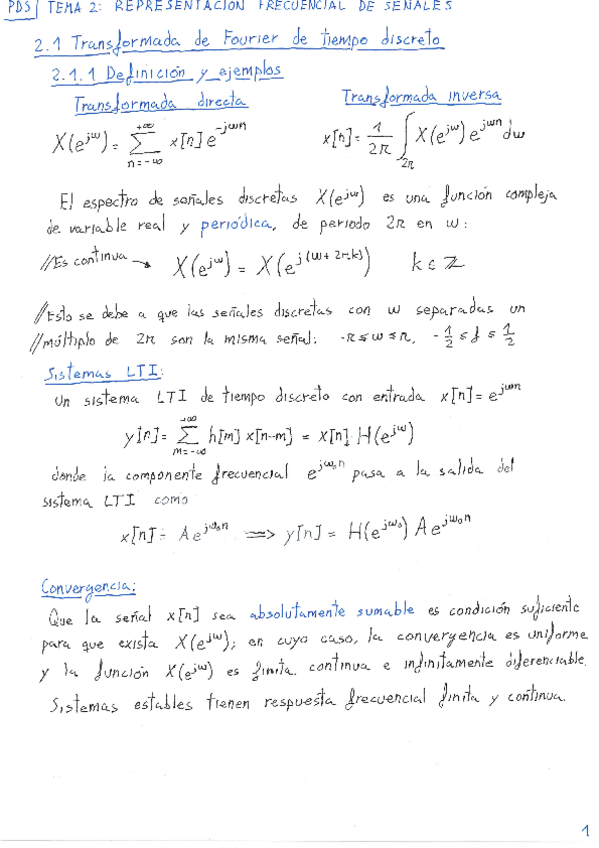 PDS | TEMA 2: REPRESENTACIÓN FRECUENCIAL DE SEÑALES
2.1 Transformada de Fourier de tiempo discreto
2.1.1 Definición y ejemplos
Transformada directa
Transformada inversa
X(e^{jω}) = Σ_{n=-∞}^{+∞} x[n] e^{-jωn}
x[n] = 1/2π ∫_{2π} X(e^{jω}) e^{jωn} dω
El espectro de señales discretas X(e^{jω}) es una función compleja
de variable real y periódica, de periodo 2π en ω:
//Es continua → X(e^{jω}) = X(e^{j(ω+2πk)}) k ∈ ℤ
//Esto se debe a que las señales discretas con ω separadas un
//múltiplo de 2π son la misma señal: -π ≤ ω ≤ π, -1/2 ≤ f ≤ 1/2
Sistemas LTI:
Un sistema LTI de tiempo discreto con entrada x[n] = e^{jωn}
y[n] = Σ_{m=-∞}^{+∞} h[m] x[n-m] = x[n] · H(e^{jω})
donde la componente frecuencial e^{jω₀n} pasa a la salida del
sistema LTI como
x[n] = A e^{jω₀n} ⟹ y[n] = H(e^{jω₀}) A e^{jω₀n}
Convergencia:
Que la señal x[n] sea absolutamente sumable es condición suficiente
para que exista X(e^{jω}); en cuyo caso, la convergencia es uniforme
y la función X(e^{jω}) es finita, continua e infinitamente diferenciable.
Sistemas estables tienen respuesta frecuencial finita y continua.
1